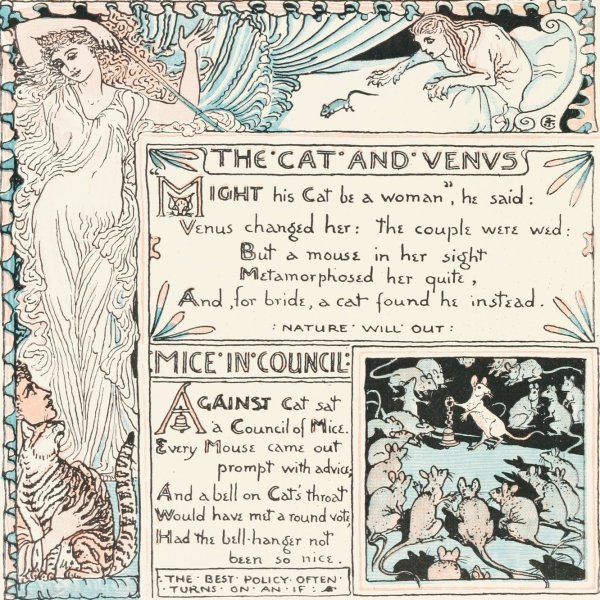 THE·CAT·AND·VENVS
MIGHT his Cat be a woman", he said:
Venus changed her: the couple were wed:
But a mouse in her sight
Metamorphosed her quite,
And, for bride, a cat found he instead.
:NATURE·WILL·OUT:
MICE·IN·COUNCIL:
AGAINST Cat sat
a Council of Mice.
Every Mouse came out
prompt with advice;
And a bell on Cat's throat
Would have met a round vote,
Had the bell-hanger not
been so nice.
THE·BEST·POLICY·OFTEN·
TURNS·ON·AN·IF: